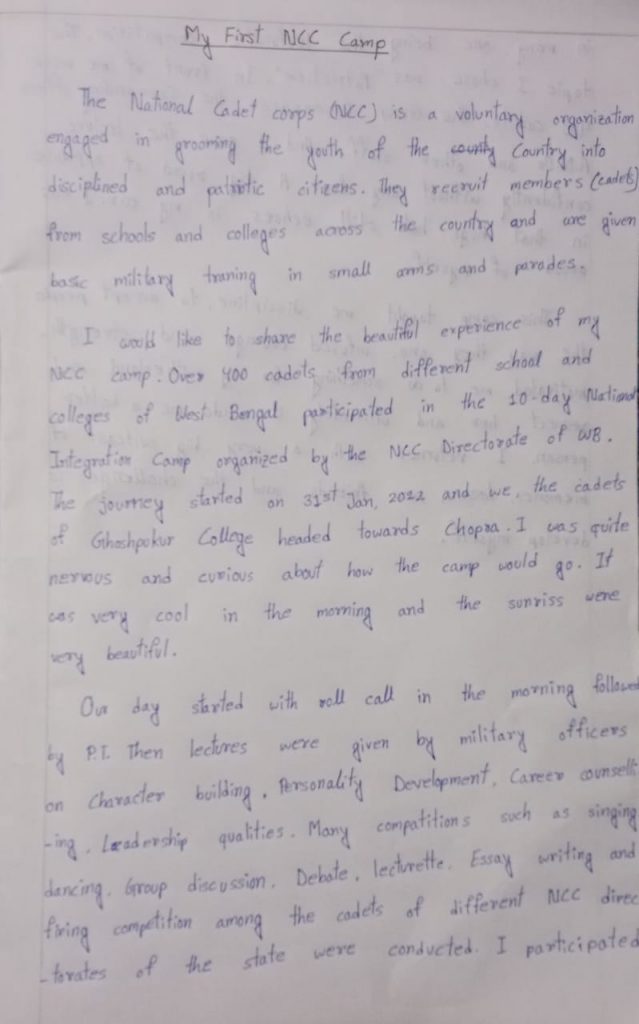 My First NCC Camp
The National Cadet corps (NCC) is a voluntary organization
engaged in grooming the youth of the county Country into
disciplined and patriotic citizens. They recruit members (cadets)
from schools and colleges across the country and are given
basic military traning in small arms and parades.
I would like to share the beautiful experience of my
NCC camp. Over 400 cadets from different school and
colleges of West Bengal participated in the 10-day National
Integration Camp organized by the NCC Directorate of WB.
The journey started on 31st Jan, 2022 and we, the cadets
of Ghoshpukur College headed towards Chopra. I was quite
nervous and curious about how the camp would go. It
was very cool in the morning and the sunriss were
very beautiful.
Our day started with roll call in the morning followed
by P.T. Then lectures were given by military officers
on Character building, Personality Development, Career counsell
-ing, Leadership qualities. Many compatitions such as singing
dancing, Group discussion, Debate, lecturette, Essay writing and
firing competition among the cadets of different NCC direc
-torates of the state were conducted. I participated